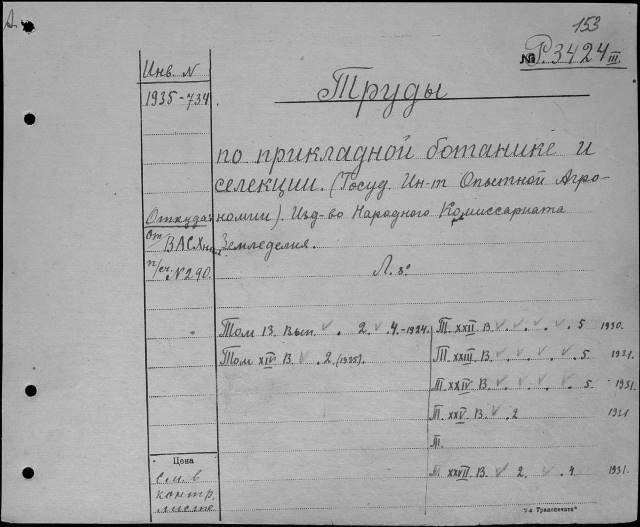 153
№ Р.3424 III.
Инв. N
1935-734.
Труды
по прикладной ботанике и
селекции. (Госуд. Ин-т Опытной Агро-
Откуда номии). Изд-во Народного Комиссариата
от ВАСХнил Земледелия.
п/сч. N 290. Л. 8°
Том 13. Вып. v . 2. v . 4. - 1924.
Том XIV В. v . 2. (1925).
Т. XXII В. v . v . v . v . 5 1930.
Т. XXIII В. v . v . v . v . 5. 1931.
Т. XXIV В. v . v . v . v . 5. 1931.
Т. XXV В. v . 2 1931
Т.
Т. XXVII В. v 2 v . 4 1931.
Цена
см. в
контр.
листке
"Транспечати"